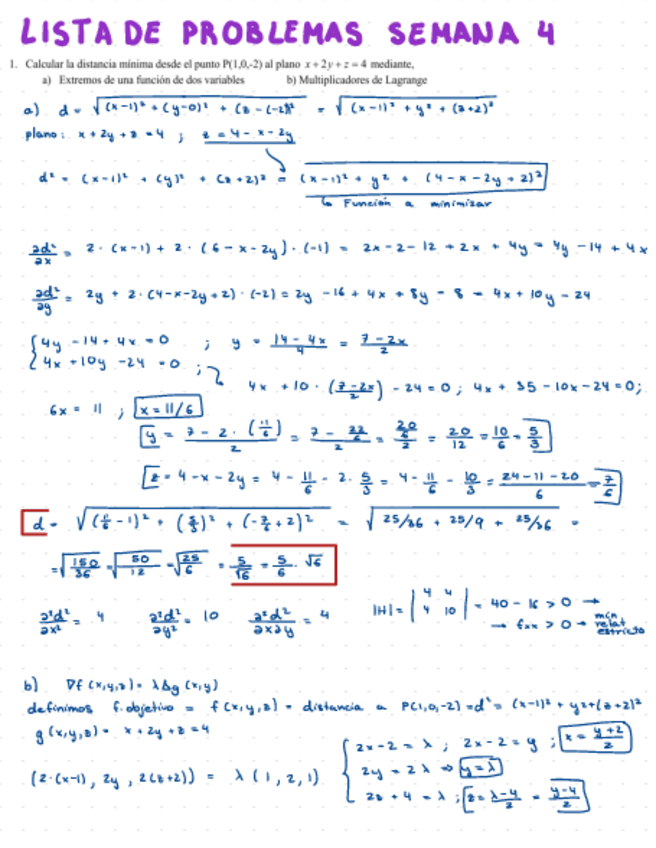 LISTA DE PROBLEMAS SEMANA 4
1. Calcular la distancia mínima desde el punto P(1,0,-2) al plano x + 2y + z = 4 mediante,
a) Extremos de una función de dos variables b) Multiplicadores de Lagrange
a) d = √((x-1)² + (y-0)² + (z-(-2))²) = √((x-1)² + y² + (z+2)²)
plano: x + 2y + z = 4 ; z = 4 - x - 2y
d² = (x-1)² + (y)² + (z+2)² = (x-1)² + y² + (4-x-2y+2)²
↳ Función a minimizar
∂d²/∂x = 2·(x-1) + 2·(6-x-2y)·(-1) = 2x-2-12+2x+4y = 4y-14+4x
∂d²/∂y = 2y + 2·(4-x-2y+2)·(-2) = 2y-16+4x+8y-8 = 4x+10y-24
4y - 14 + 4x = 0 ; y = (14-4x)/4 = (7-2x)/2
4x + 10y - 24 = 0 ; 4x + 10·((7-2x)/2) - 24 = 0 ; 4x + 35 - 10x - 24 = 0;
6x = 11 ; x = 11/6
y = (7-2·(11/6))/2 = (7-22/6)/2 = (20/6)/2 = 20/12 = 10/6 = 5/3
z = 4-x-2y = 4 - 11/6 - 2·5/3 = 4 - 11/6 - 10/3 = (24-11-20)/6 = -7/6
d = √((11/6-1)² + (5/3)² + (-7/6+2)²) = √(25/36 + 25/9 + 25/36) =
= √(150/36) = √(50/12) = √(25/6) = 5/√6 = 5/6·√6
∂²d²/∂x² = 4 ∂²d²/∂y² = 10 ∂²d²/∂x∂y = 4 |H| = |4 4; 4 10| = 40 - 16 > 0 →
→ fxx > 0 → min relat estricto
b) ∇f(x,y,z) = λ∆g(x,y)
definimos f. objetivo = f(x,y,z) = distancia a P(1,0,-2) = d² = (x-1)² + y² + (z+2)²
g(x,y,z) = x + 2y + z = 4
2x - 2 = λ ; 2x - 2 = y ; x = (y+2)/2
(2·(x-1), 2y, 2(z+2)) = λ(1, 2, 1) 2y = 2λ ⇒ y = λ
2z + 4 = λ ; z = (λ-4)/2 = (y-4)/2